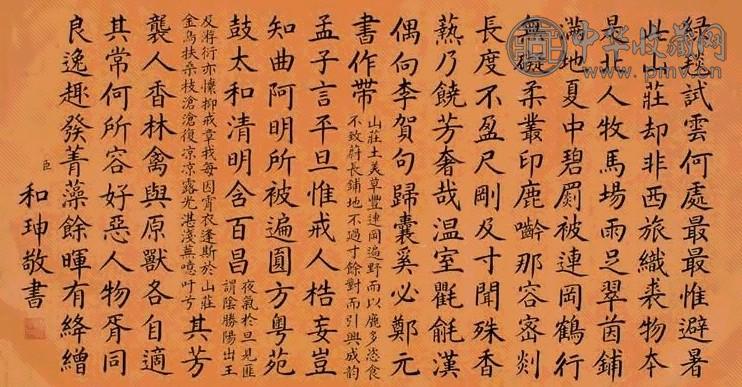 綠毯試雲何處最最惟避暑
此山莊却非西旅織裘物本
是北人牧馬場雨足翠茵鋪
滿地夏中碧罽被連岡鶴行
無礙柔叢印鹿齝那容密剡
長度不盈尺剛及寸聞殊香
爇乃饒芳奢哉温室氍毹漢
偶向李賀句歸囊奚必鄭元
書作帶
山莊土美草豐連岡遍野而以鹿多恣食
不致蔚長鋪地不過寸餘對而引興成韵
孟子言平旦惟戒人梏妄豈
知曲阿明所被遍圓方粵苑
鼓太和清明含百昌
夜氣於旦見匪
謂陰勝陽出王
及游衍亦懍抑戒章我每因宵衣逢斯於山莊
金烏扶桒枝滄滄復凉凉露光湛淺蕪叶兮
其芳
襲人香林禽與原獸各自適
其常何所容好惡人物胥同
良逸趣發菁藻餘暉有絳繒
臣和珅敬書
中华收藏网
www.pmv.cn